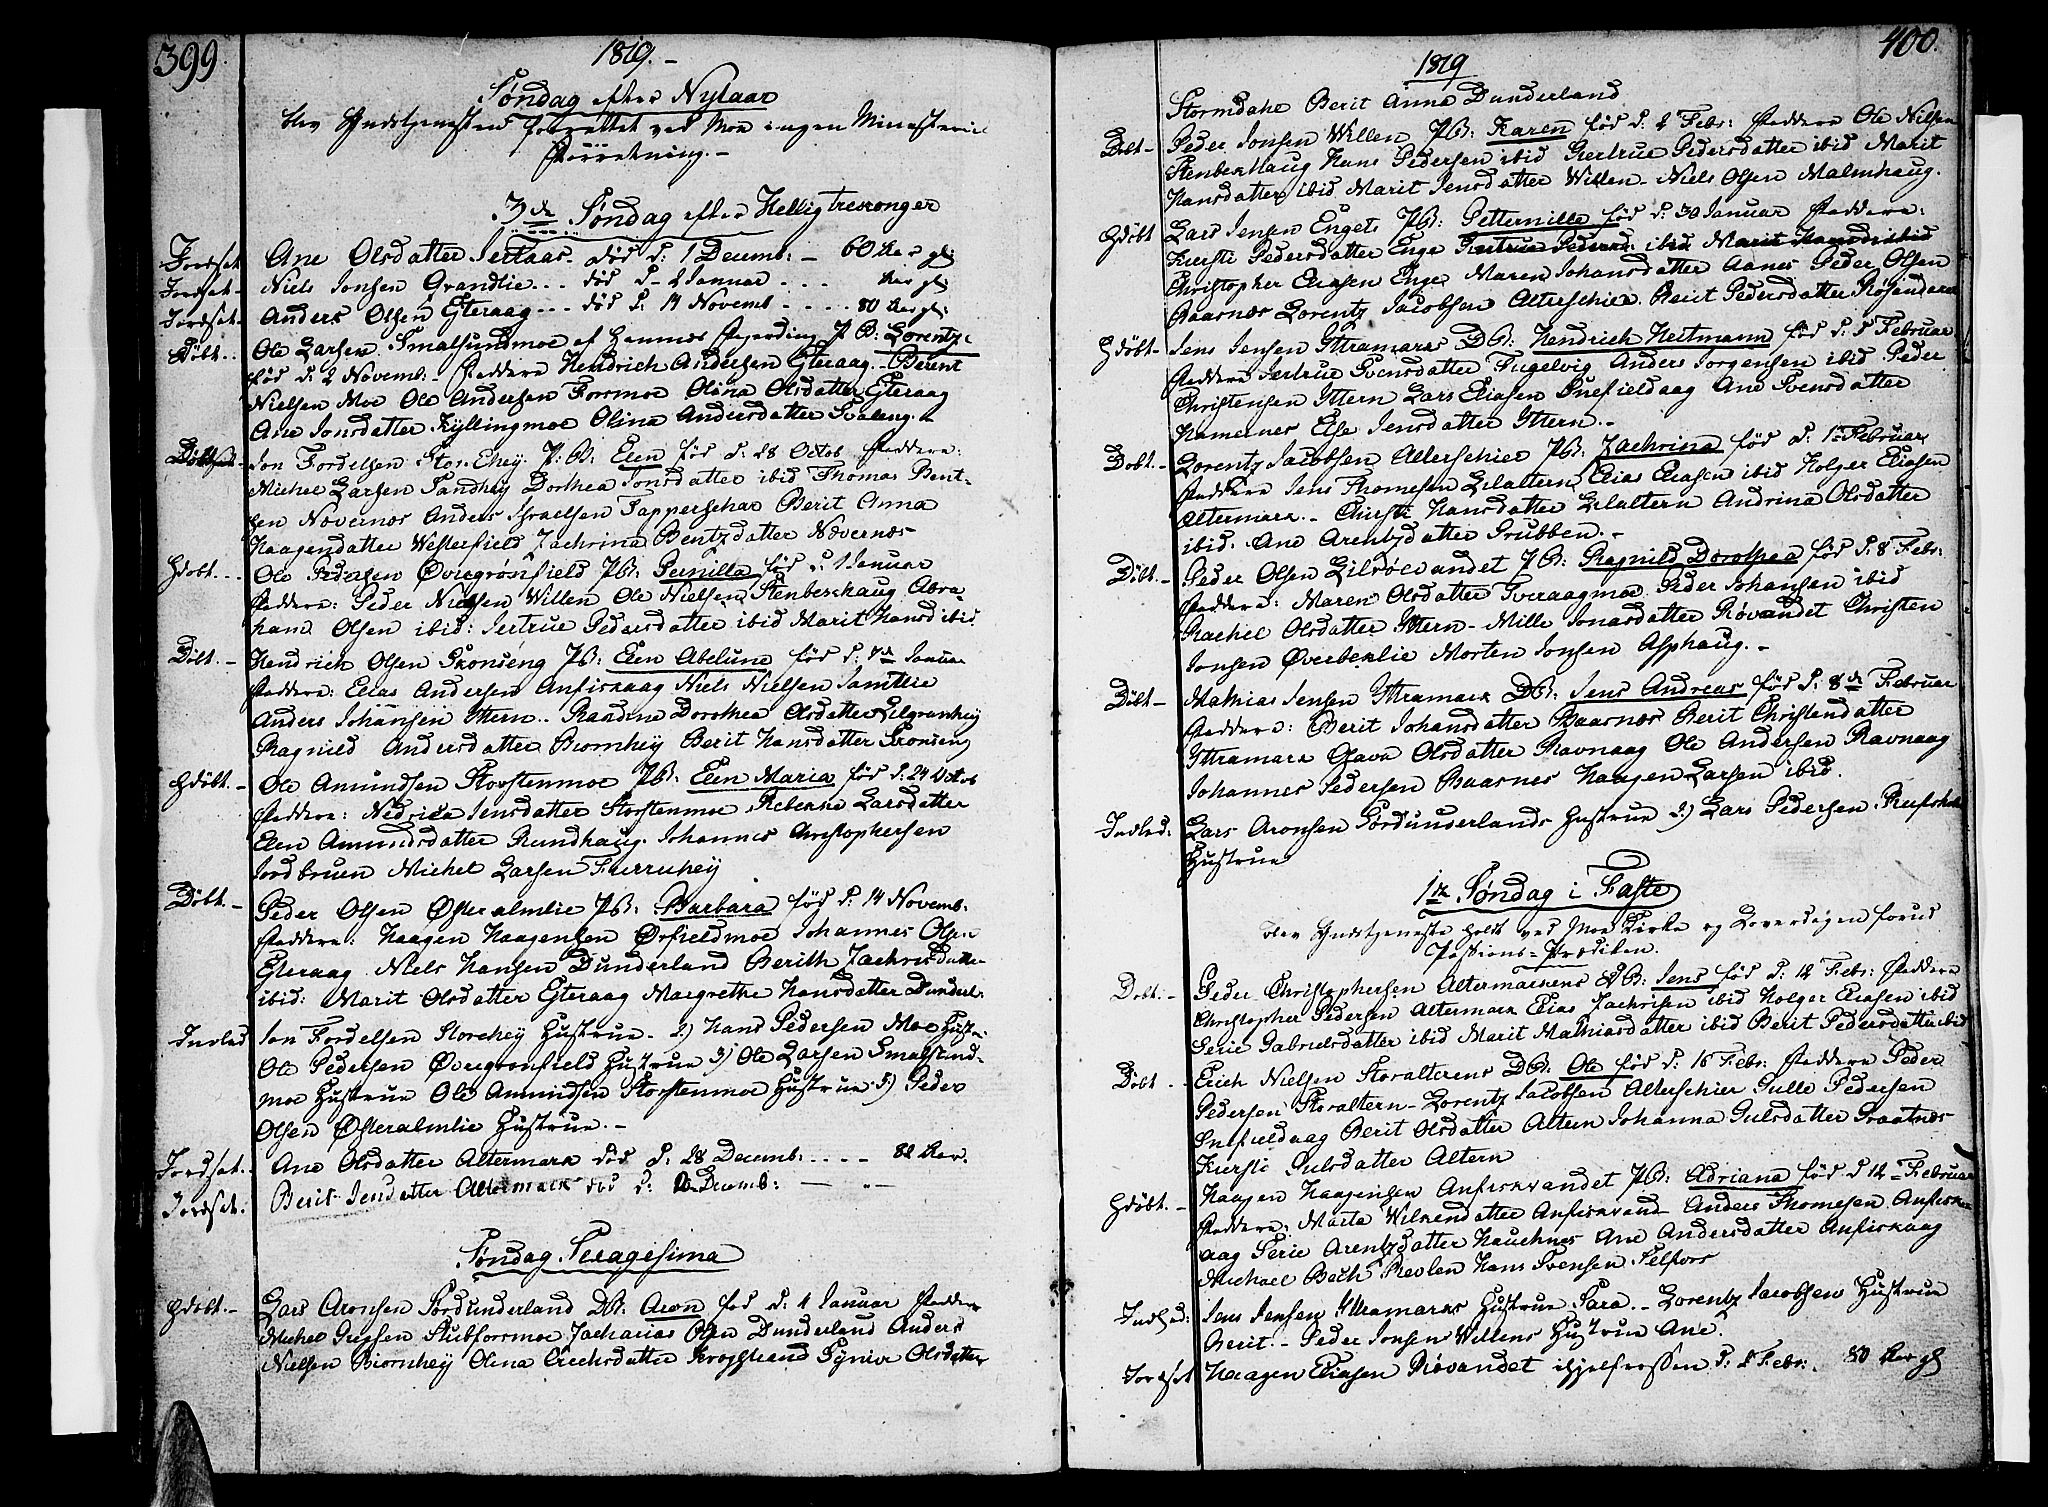 399
1819.
Søndag efter Nytaar
blev Gudstjenesten forrettet ved Moe ingen Ministeriel
Forretning.
3de Søndag efter Hellig trekonger
Jordsat Ane Olsdatter død d: 1 Decemb: 60 Aar gl:
Jordsat Niels Jonsen Grandlie død d. 2 Januar Aar gl:
Jordsat Anders Olsen Yteraag død d. 14 Novemb 80 Aar gl:
Døbt Ole Larsen Smalsundmoe af Hemnes P B: Lorentz
fød d: 2 Novemb: Faddere Hendrich Andersen Yteraag Berent
Nielsen Moe Ole Andersen Forsmoe Olina Olsdatter Yteraag
Ane Jonsdatter Kyllingmoe Olina Andersdatter Svaleng
Døbt Jon Fordelsen Storehey P: B: Elen fød d. 28 Octob Faddere:
Michel Larsen Sandhey Dorthea Jonsdatter ibid Thomas Bent-
sen Novernes Anders Israelsen Tapperskar Berit Anna
Haagendatter Westerfield Zachrina Bentzdatter Nævernæs
Hdøbt Ole Pedersen Øvregrønfield PB: Pernilla fød d: 1 Januar
Faddere: Peder Nielsen Willen Ole Nielsen Stenberhaug Abra
ham Olsen ibid: Jertrue Pedersdatter ibid Marit Hansd ibid
Døbt Hendrich Olsen Skonseng PB: Elen Abelune fød d: 7de Januar
Faddere: Elias Andersen Anfiskaag Niels Nielsen
Anders Johansen Yttern Randine Dorothea Olsdatter Lilgranhey
Ragnild Andersdatter Biornhey Berit Hansdatter Skonseng
Hdøbt Ole Amundsen Storstenmoe PB: Elen Maria fød d: 24 Octob
Faddere: Nedrica Jensdatter Storstenmoe Rebekka Larsdatter
Elen Amundsdatter Rundhaug Johannes Christophersen
Jordbruen Michel Larsen Furruhey
Døbt Peder Olsen Østeralmlie PB: Barbara fød d. 14 Novemb:
Faddere: Haagen Haagensen Ørfieldmoe Johannes Olsen
Yteraag Niels Hansen Dunderland Berith Zachrisdatter
ibid: Marit Olsdatter Yteraag Margrethe Hansdatter Dunderl:
Indled Jon Fordelsen Storehey Hustrue 2) Hans Pedersen Moe Hustr:
Ole Pedersen Øvregrønfield Hustrue 3) Ole Larsen Smalsund-
moe Hustrue Ole Amundsen Storstenmoe Hustrue 5) Peder
Olsen Østeralmlie Hustrue.
Jordsat Ane Olsdatter Altermark død d. 28 Decemb: 82 Aar.
Jordsat: Berit Jensdatter Altermark død d: Decemb:
Søndag Sexagesima
Hdøbt Lars Aronsen Sørdunderland DB: Aron fød d. 1 Januar Faddere
Michel Stubforsmoe Zacharias Olsen Dunderland Anders
Nielsen Biornhey Olena Erichsdatter Krogstrand Synive Olsdatter
400.
1819
Stormdahl Berit Anna Dunderland
Døbt Peder Jonsen Willen PB: Karen fød d. 2 Febr: Faddere Ole Nilsen
Stenberhaug Hans Pedersen ibid Gertrue Pedersdatter ibid Marit
Hansdatter ibid Marit Jensdatter Willen Niels Olsen Malmhaug.
Hdøbt Lars Jensen Engets PB: Petternille fød d. 30 Januar Faddere:
Kiersti Pedersdatter Enge Gertrue Pedersd. ibid Marit Hansd ibid
Christopher Eliasen Enge Maren Johansdatter Aanes Peder Olsen
Baasnes Lorentz Jacobsen Alterschier Berit Pedersdatter
Hdøbt Jens Jensen Yttramarks DB: Hendrich Heitmann fød d: 5 Februar
Faddere Jertrue Svensdatter Fugelvig Anders Jorgensen ibid Peder
Christensen Yttern Lars Eliasen Snefieldaag Ane Svensdatter
Hamernes Else Jensdatter Yttern.
Døbt Lorentz Jacobsen Alterschier PB: Zachrina fød d: 1 Februar
Faddere Jens Thomesen Lilaltern Elias Eliasen ibid Holger Eliasen
Altermark. Kirsti Hansdatter Lilaltern Andrina Olsdatter
ibid. Ane Arentzdatter Grubben.
Døbt Peder Olsen PB: Ragnild Dorothea fød d. 8 Febr:
Faddere: Maren Olsdatter Tveraagmoe Peder Johansen ibid
Rachel Olsdatter Yttern Mille Jonasdatter Røvandet Christen
Jonsen Øverbeklie Morten Jonsen Asphaug.
Døbt Mathias Jensen Yttramark DB: Jens Andreas fød d. 8de Februar
Faddere: Berit Johansdatter Baasnes Berit Christendatter
Yttramark Gava Olsdatter Ravnaag Ole Andersen Ravnaag
Johannes Pedersen Baasnes Haagen Larsen ibid.
Indled: Lars Aronsen Sørdunderlands Hustrue 2) Lars Pedersen
Hustrue
1te Søndag i Faste
blev Gudstjeneste holdt ved Moe Kirke og Løverdagen forud
Passions-Prædiken.
Døbt Peder Christophersen Altermarkens DB: Jens fød d: 12 Febr: Faddere
Christopher Pedersen Altermark Elias Zachrisen ibid Holger Eliasen ibid
Serie Gabrielsdatter ibid Marit Mathiasdatter ibid Berit Pedersdatter ibid
Døbt Erich Nielsen Storalterens DB: Ole fød d: 16 Febr: Faddere Peder
Pedersen Storaltern Lorentz Jacobsen Alterschier Gulle Pedersen
Snefieldaag Berit Olsdatter Altern Johanna Gulsdatter Straatnes
Kiersti Gulsdatter Altern
Hdøbt Haagen Haagensen Anfiskvandet PB: Adriana fød d 12 Februar
Faddere: Marta Wilkendatter Anfiskvand Anders Thomesen Anfisk
aag Serie Arentzdatter Hauknes Ane Andersdatter Anfiskaag
Michael Bech Revlen Hans Svensen Selfors
Indled: Jens Jensen Yttramarks Hustrue Sara. Lorentz Jacobsen Hustrue
Berit. Peder Jonsen Willens Hustrue Ane.
Jordsat Haagen Eliasen Røvandet ihjelfrossen d: 2 Febr: 80 Aar gl